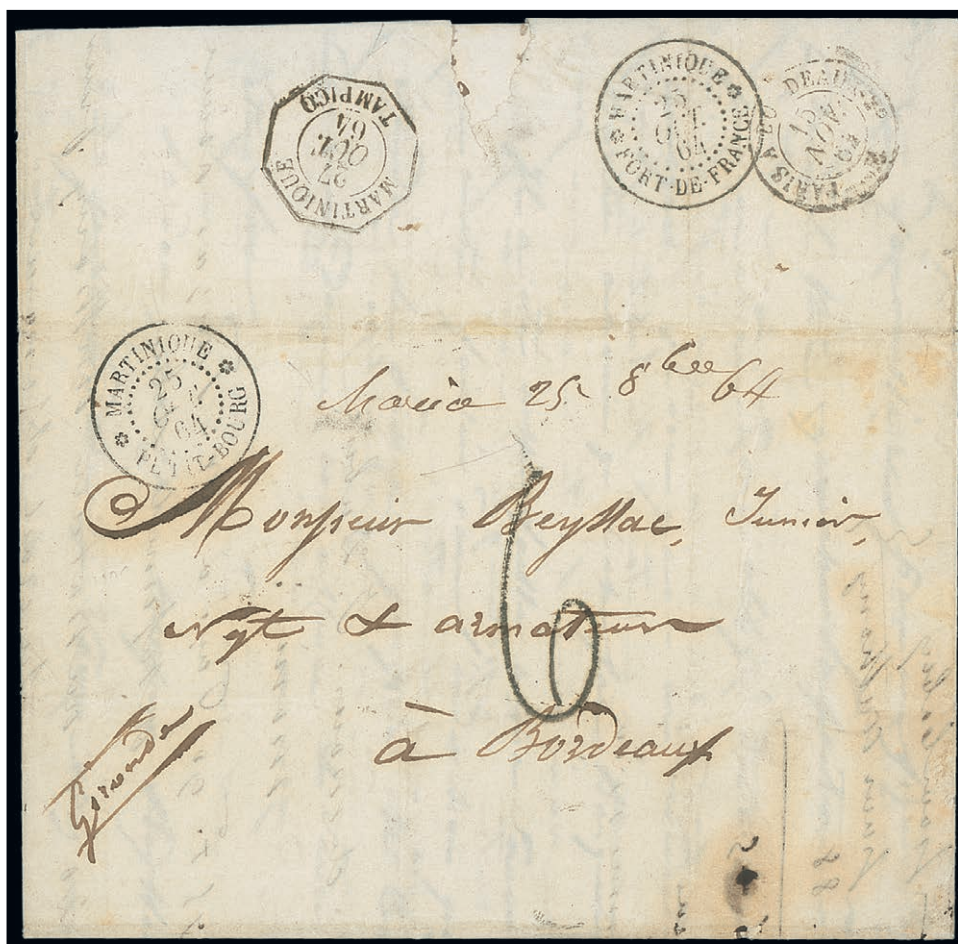 MARTINIQUE
27
OCT.
64
TAMPICO
MARTINIQUE
25
OCT.
64
FORT-DE-FRANCE
15
NOV.
64
PARIS
MARTINIQUE
25
64
PETIT-BOURG
25 8bre 64
Monsieur Beyssac, Junior,
ngt & armateur
6
à Bordeaux
Gironde